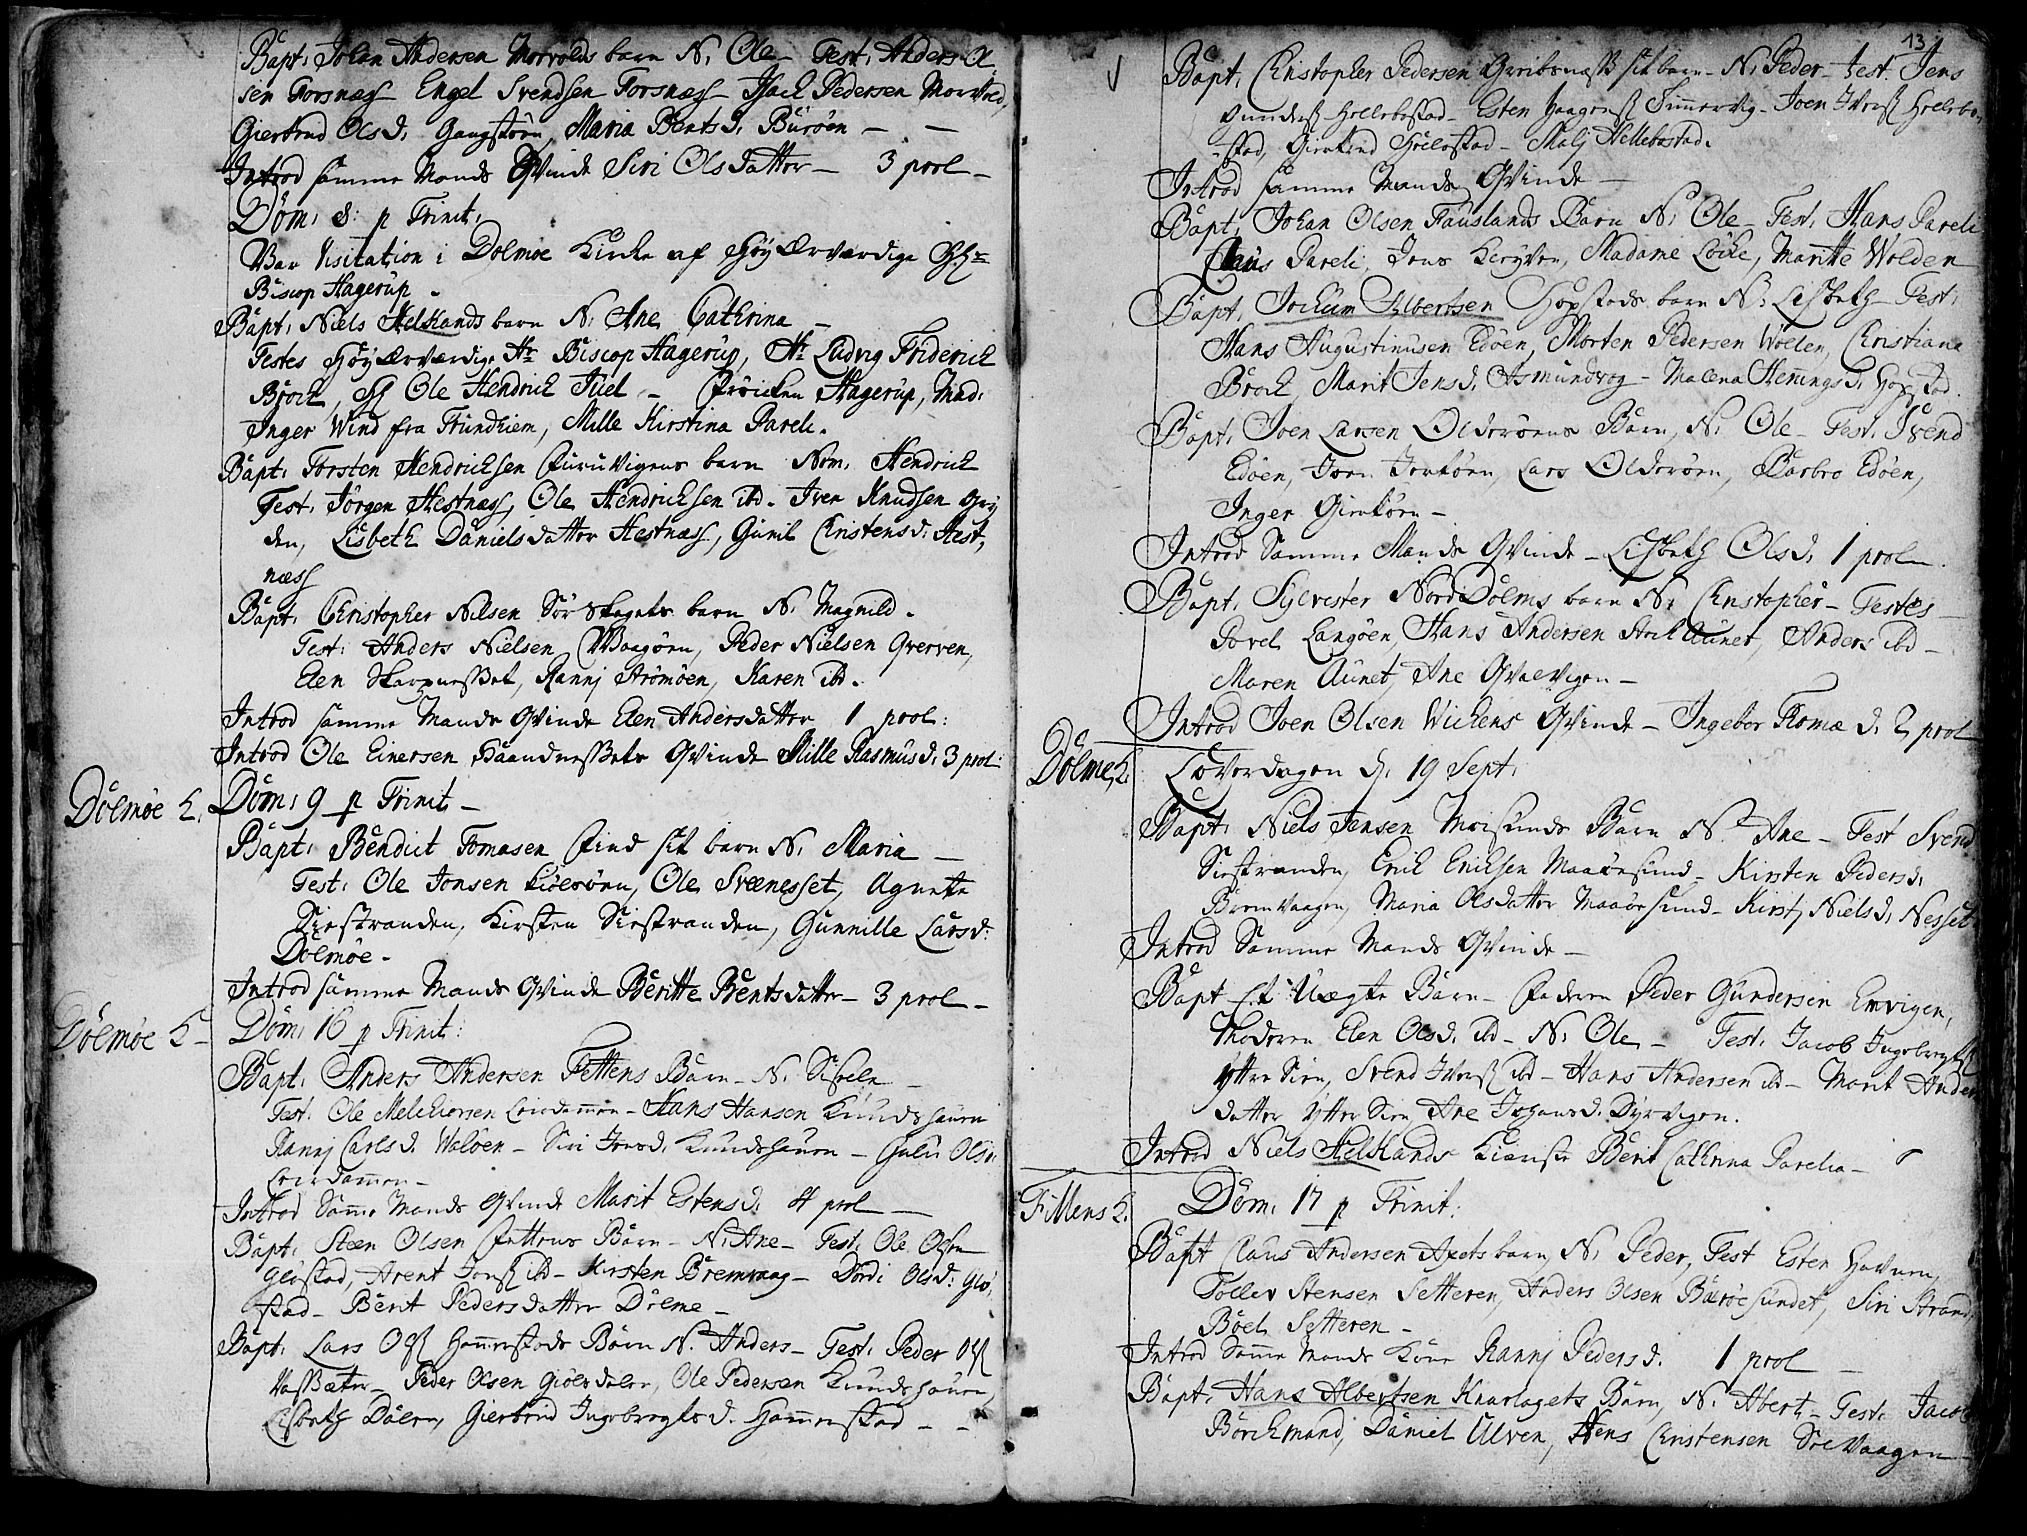 Bapt: Johan Andersen Morvolds barn N: Ole - Test: Anders Ol:
sen Forsnæss Engel Svendsen Forsnæss Isach Pedersen Morvold,
Giertrud Olsd: Gangstøen, Maria Bentsd: Burøen - -
Introd samme Mands Qvinde Siri Olsdatter - 3 prol -
Dom: 8: p Trinit:
Var Visitation i Dolmøe Kirke af Høy Ærværdige Hr
Biscop Hagerup.
Bapt: Niels Helklands barn N: Ane Cathrina -
Testes Høy Ærværdige Hr Biscop Hagerup, Hr Ludvig Friderich
Broch, Ole Hendrich Juel - Frøicken Hagerup, Mad:
Inger Wind fra Trundhiem, Mille Kirstina Pareli.
Bapt: Torsten Hendrichsen Furuvigens barn Nom: Hendrich
Test: Jørgen Hestnæss, Ole Hendrichsen ibd - Iver Knudsen Gry
den, Lisbeth Danielsdatter Hestnæss, Gunil Christensd: Hest,
næss
Bapt: Christopher Nilsen Sør Skagets barn N: Magnild.
Test: Anders Nielsen Waagøen, Peder Nielsen Qverven,
Elen Skarpnesset, Rannj Strømøen, Karen ibd.
Introd samme Mands Qvinde Elen Andersdatter 1 prol:
Introd Ole Einersen Haandnessets Qvinde Mille Rasmusd: 3 prol:
Dolmøe K. Dom: 9 p Trinit -
Bapt: Bendict Tomasen Find sit barn N: Maria -
Test: Ole Jonsen Kiøerøen, Ole Sveenesset, Agnete
Siestranden, Kirsten Siestranden, Gunnille Larsd:
Dolmøe -
Introd samme Mands Qvinde Beritte Bentsdatter - 3 prol -
Dolmøe K - Dom: 16 p Trinit:
Bapt: Anders Andersen Fettens Barn - N: Sissele -
Test: Ole Melchiorsen Leerdammen - Hans Hansen Knudshaun
Rannj Carlsd: Waløen - Siri Jensd: Knudshaun - Gulu Olsd:
Leerdammen -
Introd Samme Mands Qvinde Marit Estensd: 4 prol -
Bapt: Steen Olsen Fettens Barn - N: Ane - Test: Ole Olsen
Gløstad, Arent Jonss ibd - Kirsten Bremvaag - Dordi Olsd: Glø,
stad - Berit Pedersdatter Dolme -
Bapt: Lars Olss Hammerstads Barn N: Anders - Test: Peder Olss
Vasbøter - Peder Olsen Giølsdalen, Ole Pedersen Knudshaun,
Lisbeth Dalen, Giertrud Ingebregtsd: Hammerstad - -
13
Bapt: Christopher Pedersen Gribsnæss sit barn - N: Peder - Test: Jens
Gunderss Hellebostad - Esten Haagenss Simmervig - Joen Iverss Hellebo,
stad, Giertrud Hellestad - Malj Hellebostad.
Introd samme Mands Qvinde -
Bapt: Johan Olsen Fauslands Barn N: Ole - Test: Hans Pareli
Claus Pareli, Jens Kieyven, Madame Løcke, Maritte Wolden
Bapt: Jochum Albertsen Hopstads barn N: Lisbeth - Test:
Hans Augustinusen Edøen, Morten Pedersen Woelen, Christiana
Broch, Marit Jensd: Asmundvog - Malena Henningsd: Hopstad.
Bapt: Joen Larsen Olderøens Barn, N: Ole - Test: Svend
Edøen, Joen Jentøen, Lars Olderøen, Barbro Edøen,
Inger Gintøen -
Introd Samme Mands Qvinde - Lisbeth Olsd: 1 prol -
Bapt: Sylvester Norddolms barn N: Christopher - Testes -
Povel Langøen, Hans Andersen Stock Aunet, Anders ibd -
Maren Aunet, Ane Qvalvigen -
Introd Joen Olsen Wichens Qvinde - Ingebor Tomæ d: 2 prol
Dolme K. Løverdagen d: 19 Sept:
Bapt: Niels Jensen Morsunds Barn N: Ane - Test Svend
Siestranden, Erich Erichsen Maaøesund - Kirsten Pedersd:
Bremvaagen, Maria Olsdatter Maaøesund - Kirst, Nielsd: Nesset
Introd Samme Mands Qvinde -
Bapt Et Uægte Barn - Faderen Peder Gundersen Emvigen,
Moderen Elen Olsd: ibd - N: Ole - Test: Jacob Ingebregtss
Yttre Sien, Svend Iverss ibd - Hans Andersen ib - Marit Anders
datter Ytter Sien, Ane Johansd: Dyrvigen.
Introd Niels Helklands Kiæriste Berit Cathrina Parelia -
Fillens K. Dom: 17 p Trinit:
Bapt Claus Andersen Axets barn, N: Peder, Test Esten Havnen,
Tollev Stensen Setteren, Anders Olsen Bærøesundet, Siri Strand,
Boel Setteren -
Introd Samme Mands Kone Rannj Pedersd: 1 prol -
Bapt: Hans Albertsen Knarlagets Barn, N: Abert - Test: Jacob
Borchmand, Daniel Ulven, Hens Christensen Soevaagen -